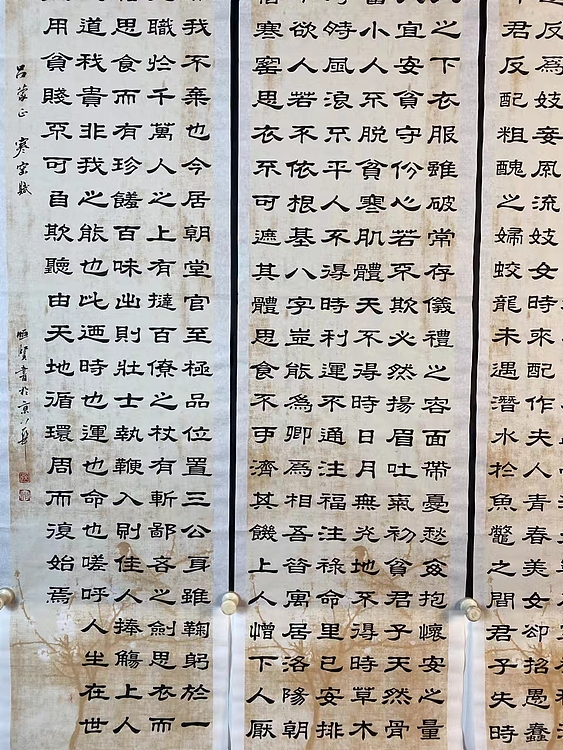 反爲妓妾風流妓女時來配作夫人青春美女卻招愚蠢
君反配粗醜之婦蛟龍未遇潛水於魚鱉之間君子失時
之下衣服雖破常存儀禮之容面帶憂愁每抱懷安之量
宜安貧守份心若不欺必然揚眉吐氣初貧君子天然骨
小人不脫貧寒肌體天不得時日月無光地不得時草木
時風浪不平人不得時利運不通注福注祿命里已安排
欲人若不依根基八字豈能為卿爲相吾昔寓居洛陽朝
寒窰思衣不可遮其體思食不可濟其饑上人憎下人厭
我不棄也今居朝堂官至極品位置三公身雖鞠躬於一
職於千萬人之上有撻百僚之杖有斬鄙吝之劍思衣而
思食而有珍饈百味出則壯士執鞭入則佳人捧觴上人
道我貴非我之能也此迺時也運也命也嗟呼人生在世
用貧賤不可自欺聽由天地循環周而復始焉
呂蒙正 寒窑賦
書於京